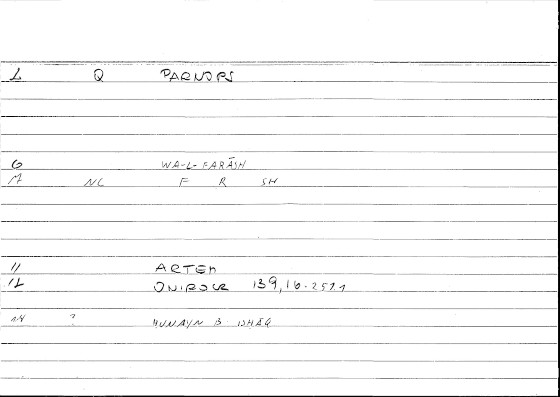 1 Q PARNOPS
6 WA-L-FARĀSH
7 NC F R SH
11 ARTEM
12 ONIROCR 139,16-25,1
14 ? HUNAYN B ISHĀQ